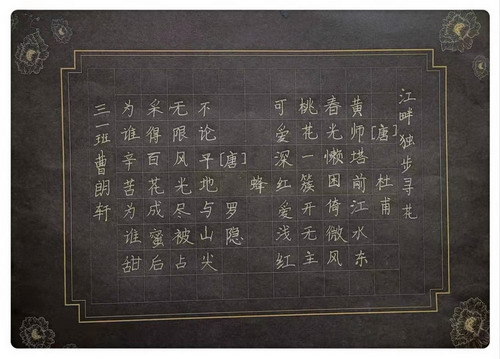 江畔独步寻花
[唐]杜甫
黄师塔前江水东
春光懒困倚微风
桃花一簇开无主
可爱深红爱浅红
蜂
[唐]罗隐
不论平地与山尖
无限风光尽被占
采得百花成蜜后
为谁辛苦为谁甜
三一班曹朗轩